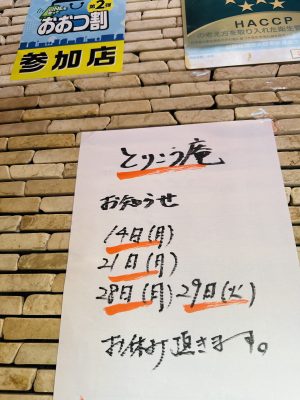 第2弾
おおつ割
参加店
HACCP
の考え方を取り入れた衛生管
とりこう庵
お知らせ
14日(月)
21日(月)
28日(月)29日(火)
お休み頂きます。